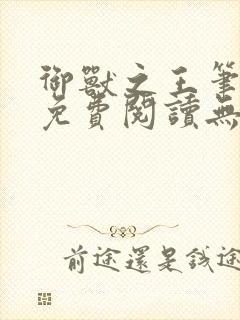 御獸之王筆
免費閱讀無
前途還是錢途